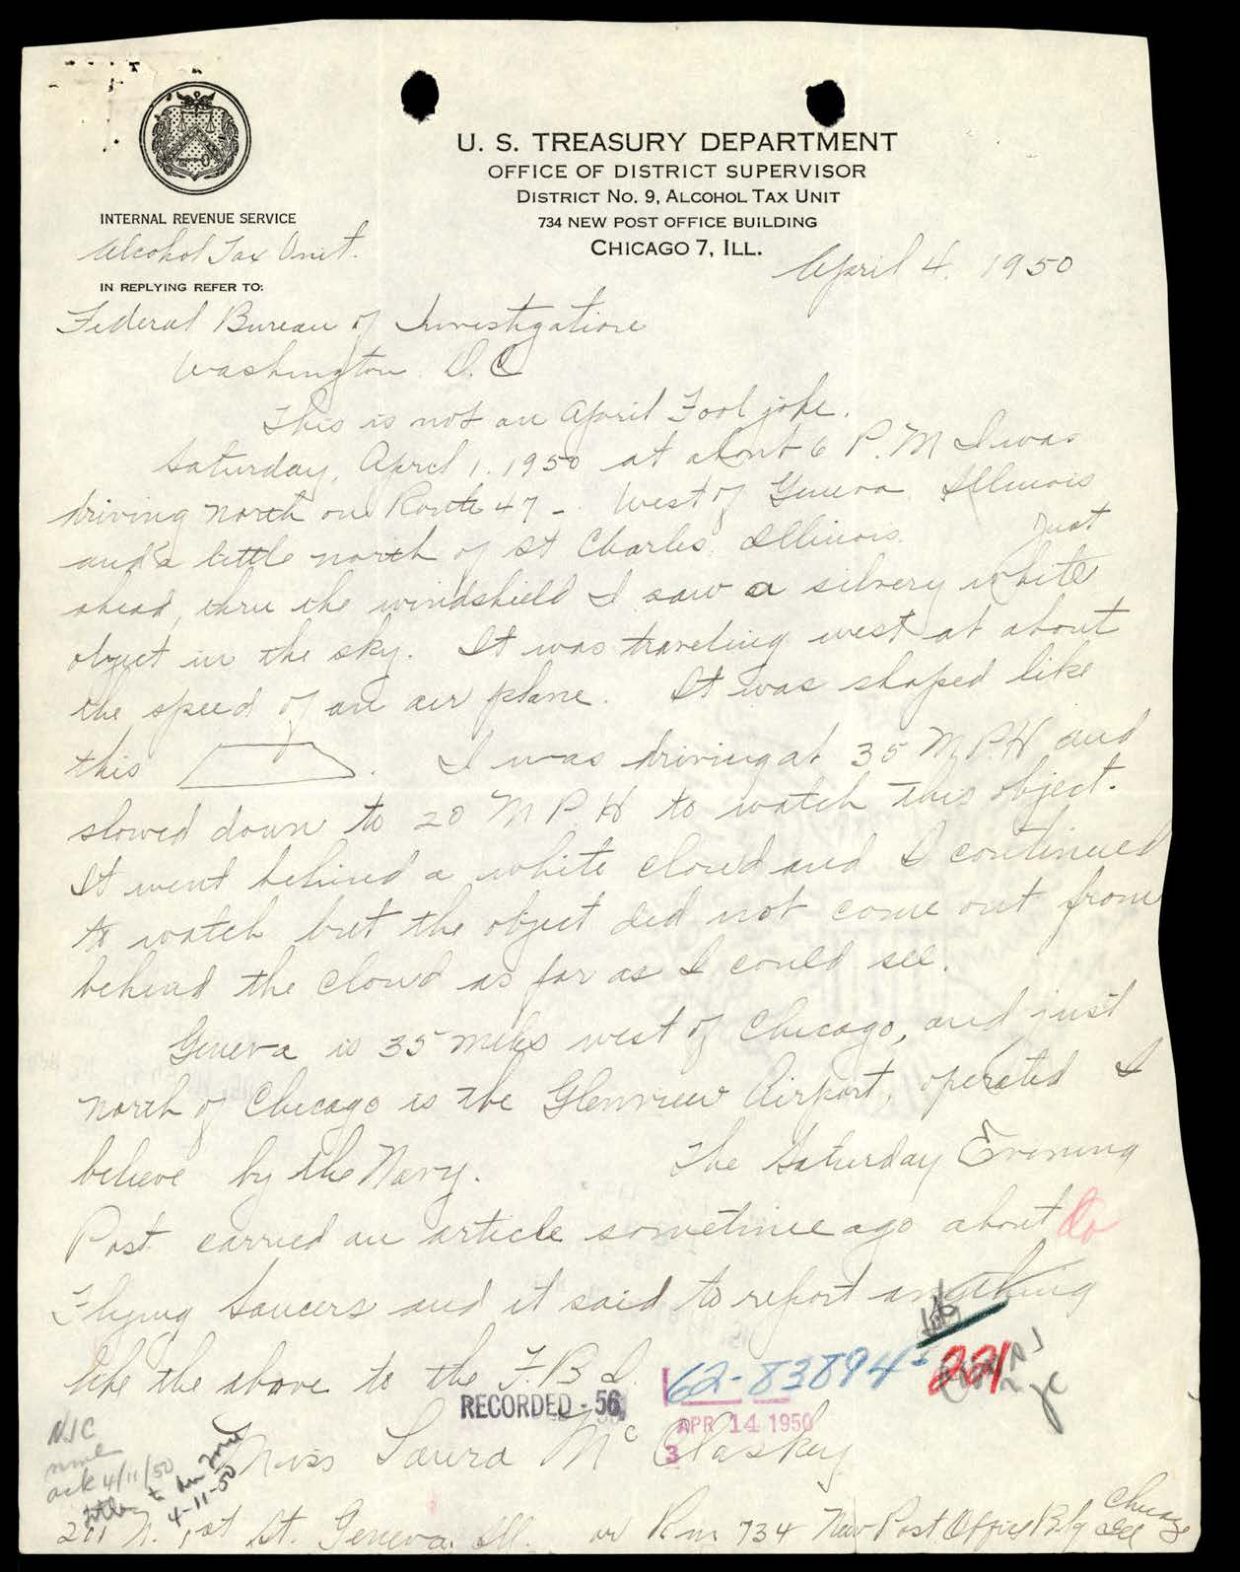 U. S. TREASURY DEPARTMENT
OFFICE OF DISTRICT SUPERVISOR
DISTRICT NO. 9, ALCOHOL TAX UNIT
734 NEW POST OFFICE BUILDING
CHICAGO 7, ILL.
INTERNAL REVENUE SERVICE
Alcohol Tax Unit.
IN REPLYING REFER TO:
April 4. 1950
Federal Bureau of Investigation
Washington D.C
This is not an April Fool joke.
Saturday, April 1. 1950 at about 6 P.M I was
driving north on Route 47 - West of Geneva Illinois
and a little north of St Charles Illinois. Just
ahead, thru the windshield I saw a silvery white
object in the sky. It was traveling west at about
the speed of an air plane. It was shaped like
this . I was driving at 35 M.P.H and
slowed down to 20 M P. H to watch this object.
It went behind a white cloud and I continued
to watch but the object did not come out from
behind the cloud as far as I could see.
Geneva is 35 miles west of Chicago, and just
north of Chicago is the Glenview Airport, operated I
believe by the Navy. The Saturday Evening
Post carried an article sometime ago about
Flying Saucers and it said to report anything
like the above to the F B I.
62-83894-221
RECORDED - 56
APR 14 1950
3
Miss Laura McClaskey
NJC
ack 4/11/50
4-11-50
201 N. 1st St. Geneva. Ill. or Rm 734 New Post Office Bldg Chicago
Ill